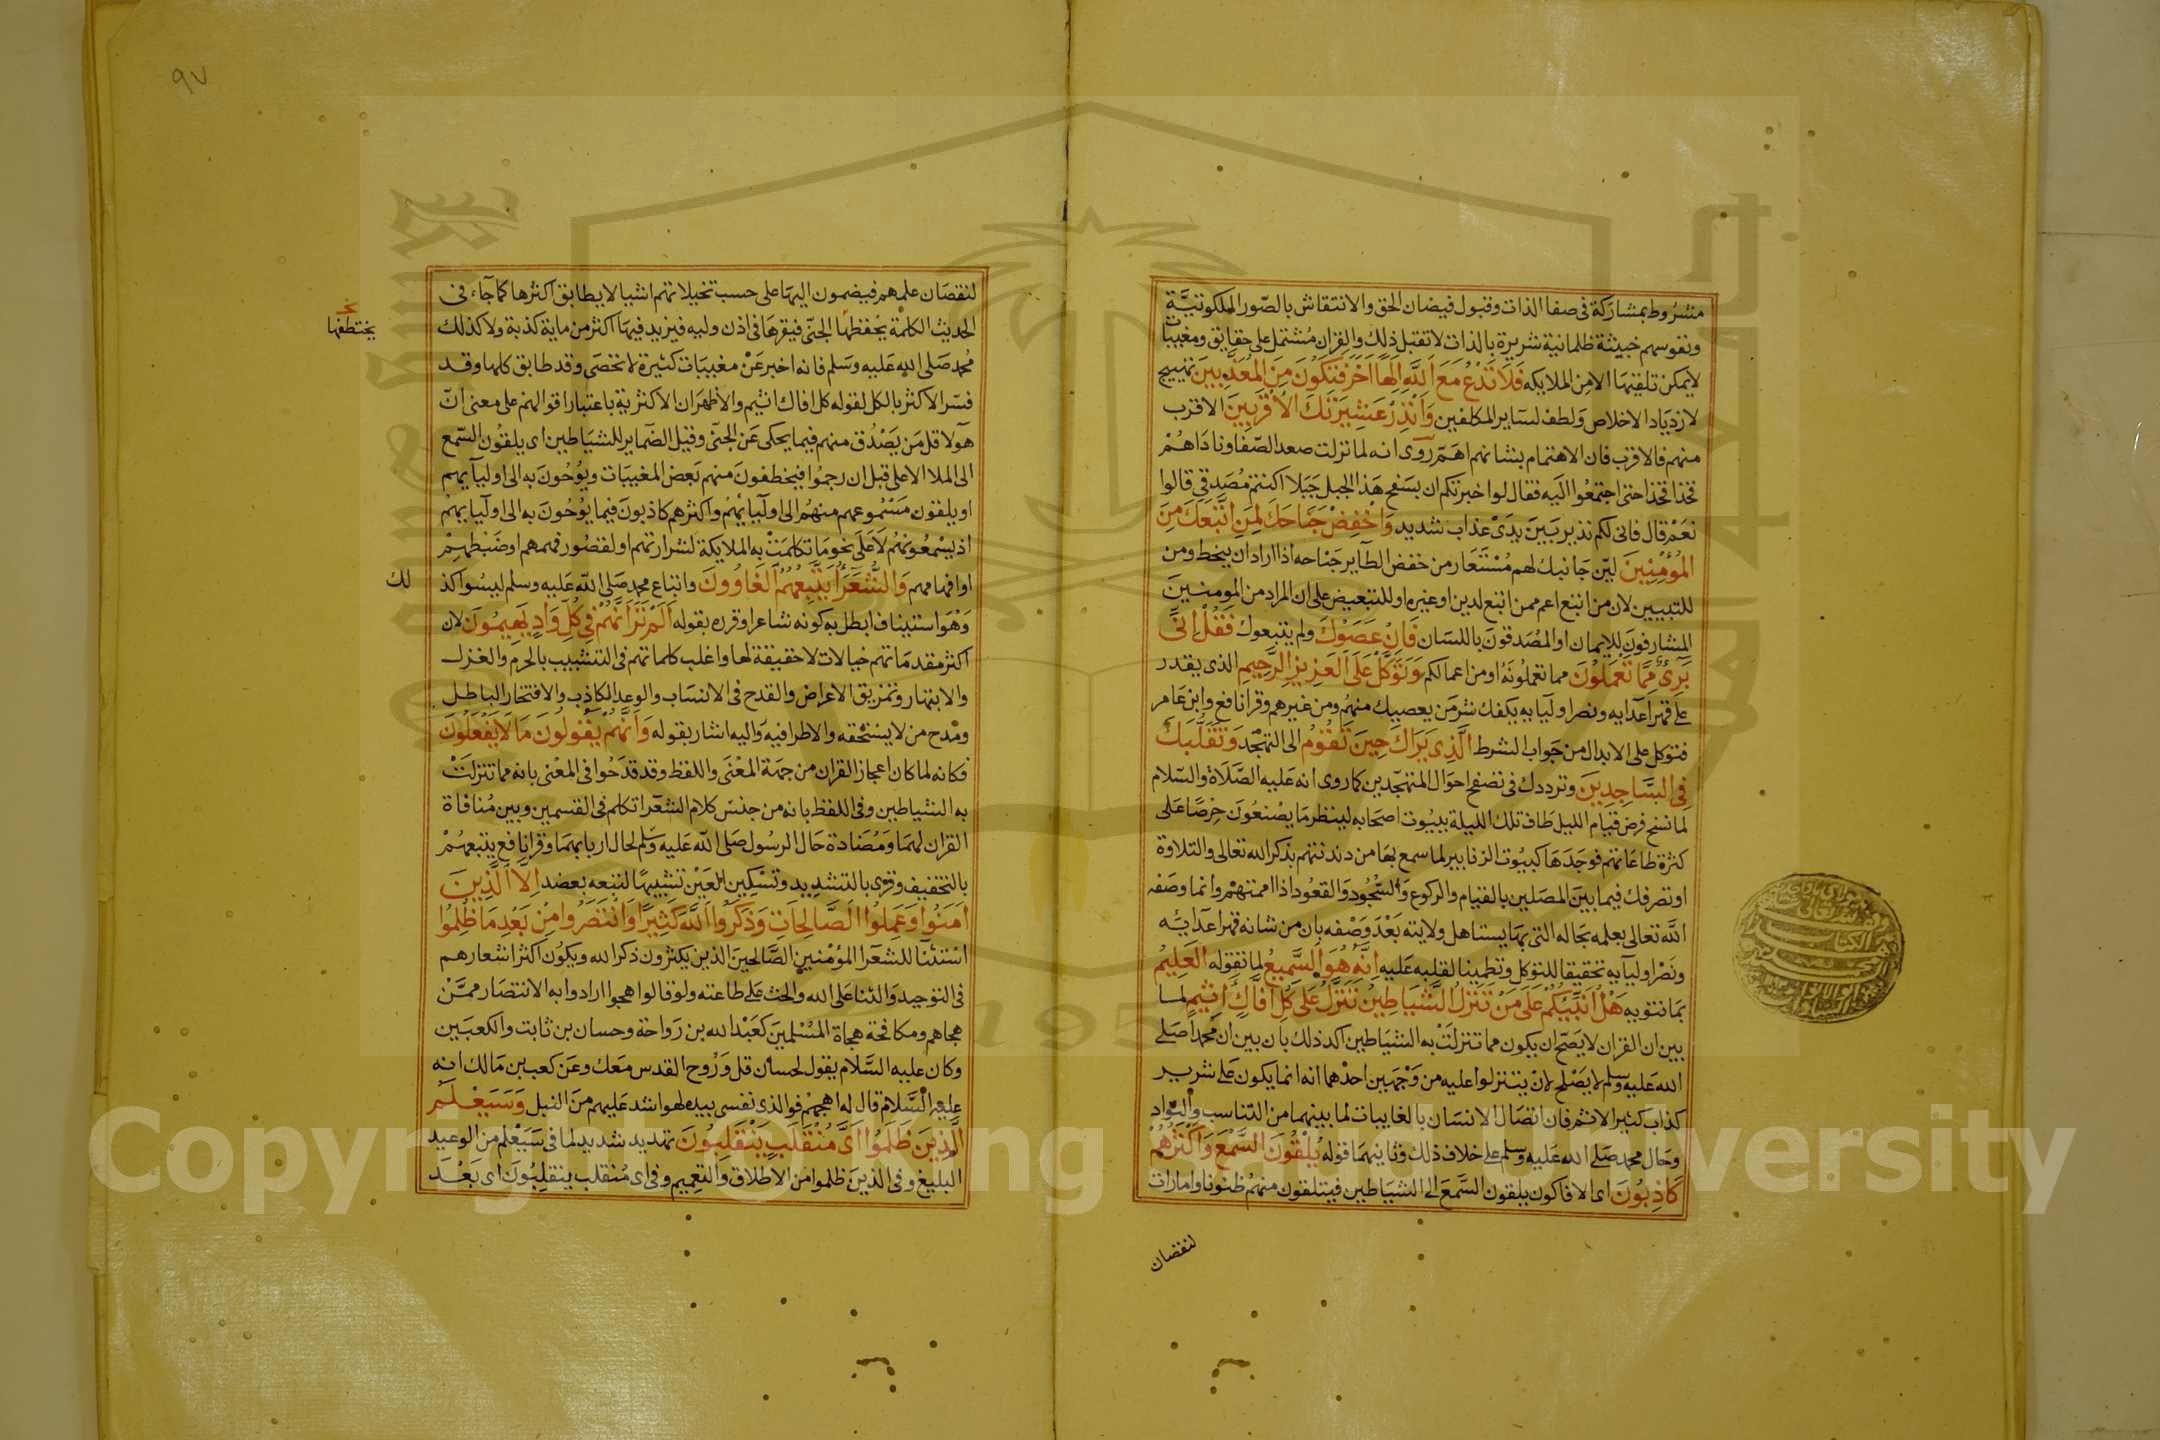 مشروط بمشاركة في صفا الذات وقبول فيضان الحق والانتقاش بالصور الملكوتية
ونفوسهم خبيثة ظلمانية شريرة بالذات لا تقبل ذلك والقران مشتمل على حقايق ومغيبات
لا يمكن تلقيها الا من الملايكه فَلَا تَدْعُ مَعَ اللَّهِ إِلَهًا آخَرَ فَتَكُونَ مِنَ الْمُعَذَّبِينَ تهييج
لازدياد الاخلاص ولطف لساير المكلفين وَأَنْذِرْ عَشِيرَتَكَ الْأَقْرَبِينَ الاقرب
منهم فالاقرب فان الاهتمام بشانهم اهم روى انه لما نزلت صعد الصفا وناداهم
فخذا فخذا حتى اجتمعوا اليه فقال لو اخبرتكم ان بسفح هذا الجبل خيلا اكنتم مصدقي قالوا
نعم قال فاني لكم نذير بين يدي عذاب شديد وَاخْفِضْ جَنَاحَكَ لِمَنِ اتَّبَعَكَ مِنَ
الْمُؤْمِنِينَ لين جانبك لهم مستعار من خفض الطاير جناحه اذا اراد ان ينحط ومن
للتبيين لان من اتبع اعم ممن اتبع لدين او غيره او للتبعيض على ان المراد من المومنين
المشارفون للايمان او المصدقون باللسان فَإِنْ عَصَوْكَ ولم يتبعوك فَقُلْ إِنِّي
بَرِيءٌ مِمَّا تَعْمَلُونَ مما تعملونه او من اعمالكم وَتَوَكَّلْ عَلَى الْعَزِيزِ الرَّحِيمِ الذي يقدر
على قهر اعدايه ونصر اوليايه يكفك شر من يعصيك منهم ومن غيرهم وقرا نافع وابن عامر
فتوكل على الابدال من جواب الشرط الَّذِي يَرَاكَ حِينَ تَقُومُ الى التهجد وَتَقَلُّبَكَ
فِي السَّاجِدِينَ وترددك في تصفح احوال المتهجدين كما روى انه عليه الصلاة والسلام
لما نسخ فرض قيام الليل طاف تلك الليلة ببيوت اصحابه لينظر ما يصنعون حرصا على
كثرة طاعاتهم فوجدها كبيوت الزنابير لما سمع بها من دندنتهم بذكر الله تعالى والتلاوة
او تصرفك فيما بين المصلين بالقيام والركوع والسجود والقعود اذا اممتهم وانما وصفه
الله تعالى بعلمه بحاله التي بها يستاهل ولايته بعد وصفه بان من شانه قهر اعدايه
ونصر اوليايه تحقيقا للتوكل وتطمينا لقلبه عليه إِنَّهُ هُوَ السَّمِيعُ لما تقوله الْعَلِيمُ
بما تنويه هَلْ أُنَبِّئُكُمْ عَلَى مَنْ تَنَزَّلُ الشَّيَاطِينُ تَنَزَّلُ عَلَى كُلِّ أَفَّاكٍ أَثِيمٍ لما
بين ان القران لا يصح ان يكون مما تنزلت به الشياطين اكد ذلك بان بين ان محمدا صلى
الله عليه وسلم لا يصلح لان يتنزلوا عليه من وجهين احدهما انه انما يكون على شرير
كذاب كثير الاثم فان اتصال الانسان بالغايبات لما بينهما من التناسب والتواد
وحال محمد صلى الله عليه وسلم على خلاف ذلك وثانيهما قوله يُلْقُونَ السَّمْعَ وَأَكْثَرُهُمْ
كَاذِبُونَ اي الافاكون يلقون السمع الى الشياطين فيتلقون منهم ظنونا وامارات
لنقصان
٩٧
لنقصان علمهم فيضمون اليها على حسب تخيلاتهم اشيا لا يطابق اكثرها كما جاء في
الحديث الكلمة يخفظها الجني فيقرها في اذن وليه فيزيد فيها اكثر من ماية كذبة ولا كذلك
يختطفها
محمد صلى الله عليه وسلم فانه اخبر عن مغيبات كثيرة لا تحصى وقد طابق كلها وقد
فسر الاكثر بالكل لقوله كل افاك اثيم والاظهر ان الاكثرية باعتبار اقوالهم على معنى ان
هولا قل من يصدق منهم فيما يحكى عن الجني وقيل الضماير للشياطين اي يلقون السمع
الى الملا الاعلى قبل ان رجموا فيخطفون منهم بعض المغيبات ويوحون به الى اوليايهم
او يلقون مسموعهم منهم الى اوليائهم واكثرهم كاذبون فيما يوحون به الى اوليايهم
اذ يسمعونهم لا على نحو ما تكلمت به الملايكة لشرارتهم او لقصور فهمهم او ضبطهم
او افهامهم وَالشُّعَرَاءُ يَتَّبِعُهُمُ الْغَاوُونَ واتباع محمد صلى الله عليه وسلم ليسوا كذ
لك
وهو استيناف ابطل به كونه شاعرا وقرره بقوله أَلَمْ تَرَ أَنَّهُمْ فِي كُلِّ وَادٍ يَهِيمُونَ لان
اكثر مقدماتهم خيالات لا حقيقة لها واغلب كلماتهم في التشبيب بالحرم والغزل
والابتهار وتمزيق الاعراض والقدح في الانساب والوعد الكاذب والافتخار الباطل
ومدح من لا يستحقه والاطرافيه واليه اشار بقوله وَأَنَّهُمْ يَقُولُونَ مَا لَا يَفْعَلُونَ
فكانه لما كان اعجاز القران من جهة المعنى واللفظ وقد قدحوا في المعنى بانه مما تنزلت
به الشياطين وفي اللفظ بانه من جنس كلام الشعرا تكلم في القسمين وبين منافاة
القران لهما ومضادة حال الرسول صلى الله عليه وسلم لحال اربابهما وقرا نافع يتبعهم
بالتخفيف وقرى بالتشديد وتسكين العين تشبيها لتبعه بعضد إِلَّا الَّذِينَ
آمَنُوا وَعَمِلُوا الصَّالِحَاتِ وَذَكَرُوا اللَّهَ كَثِيرًا وَانْتَصَرُوا مِنْ بَعْدِ مَا ظُلِمُوا
استثنا للشعرا المؤمنين الصالحين الذين يكثرون ذكر الله ويكون اكثر اشعارهم
في التوحيد والثنا على الله والحث على طاعته ولو قالوا هجوا ارادوا به الانتصار ممن
هجاهم ومكافحة هجاة المسلمين كعبد الله بن رواحة وحسان بن ثابت والكعبين
وكان عليه السلام يقول لحسان قل وروح القدس معك وعن كعب بن مالك انه
عليه السلام قال له اهجهم فوالذي نفسي بيده لهو اشد عليهم من النبل وَسَيَعْلَمُ
الَّذِينَ ظَلَمُوا أَيَّ مُنْقَلَبٍ يَنْقَلِبُونَ تهديد شديد لما في سيعلم من الوعيد
البليغ وفي الذين ظلموا من الاطلاق والتعميم وفي اي منقلب ينقلبون اي بعد